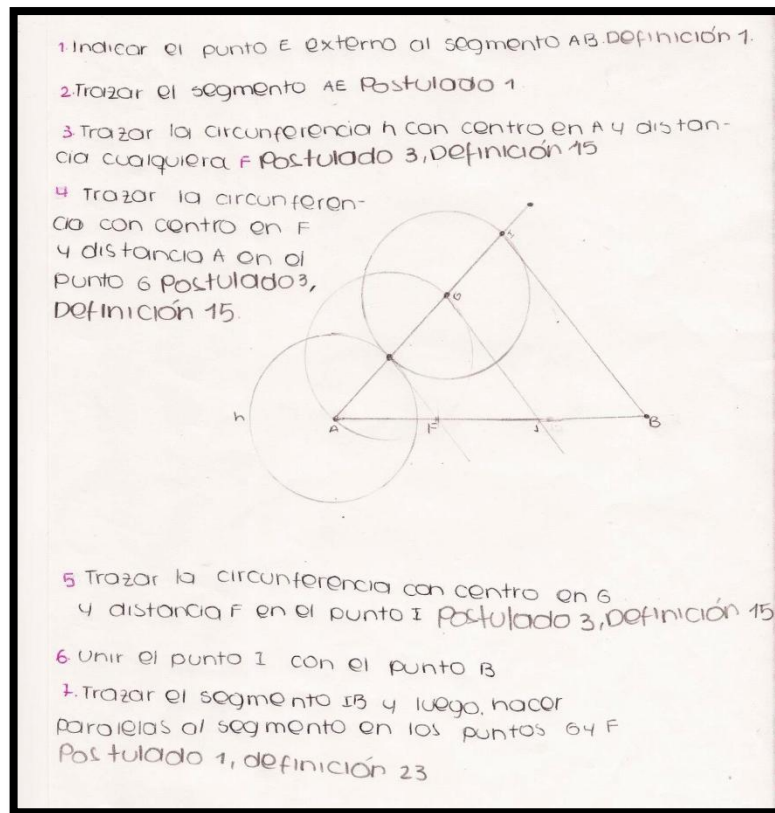 1. Indicar el punto E externo al segmento AB. Definición 1.
2. Trazar el segmento AE Postulado 1
3 Trazar la circunferencia h con centro en A y distan-
cia cualquiera F Postulado 3, Definición 15
4 Trazar la circunferen-
cia con centro en F
y distancia A en el
punto G Postulado 3,
Definición 15.
G
h
A
F
J
B
5 Trazar la circunferencia con centro en G
y distancia F en el punto I Postulado 3, Definición 15
6. Unir el punto I con el punto B
7. Trazar el segmento IB y luego, hacer
paralelas al segmento en los puntos G y F
Postulado 1, definición 23